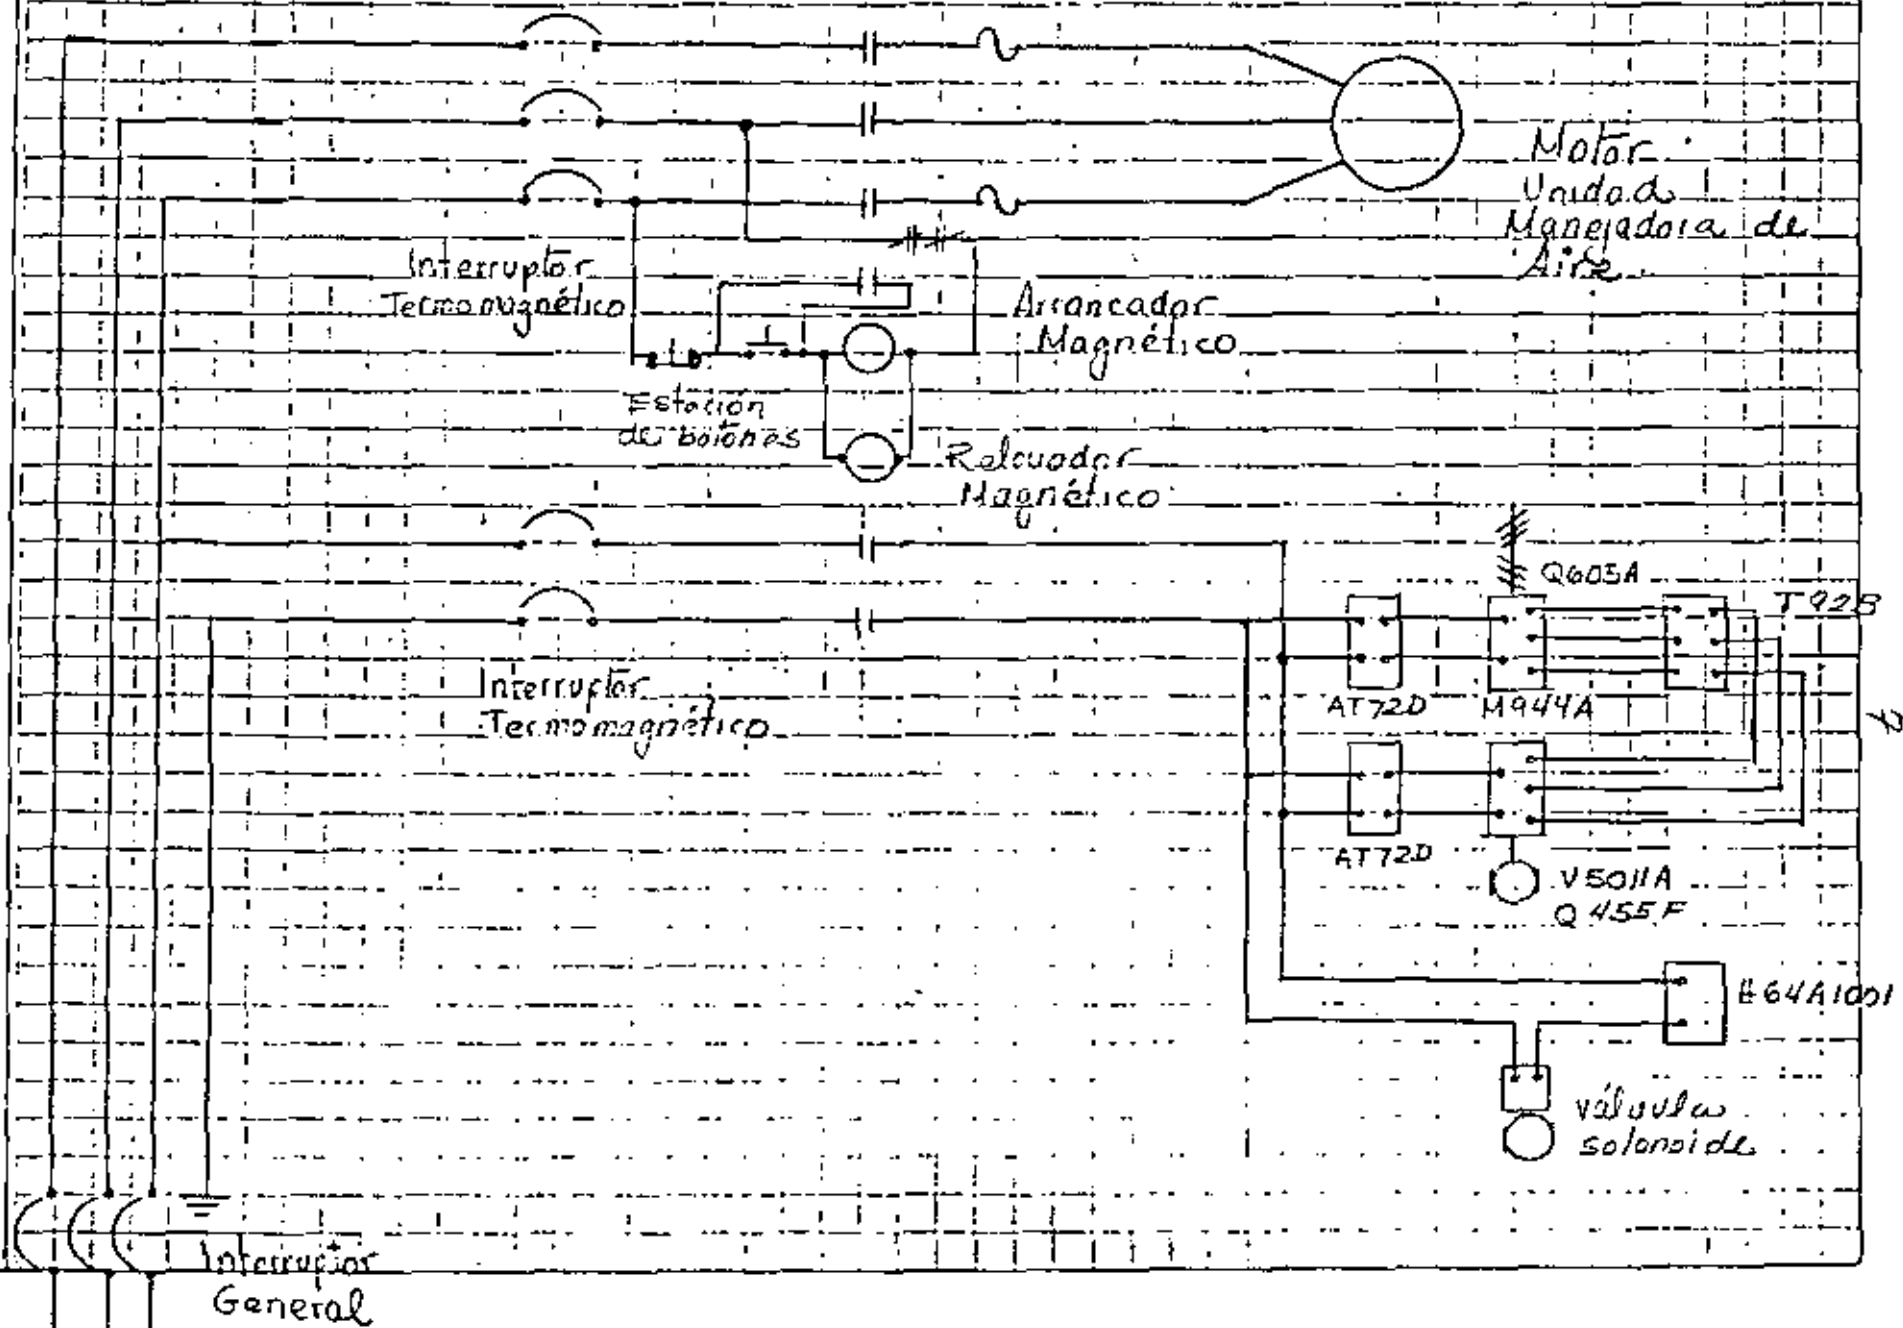 Motor
Unidad
Manejadora de
Aire
Interruptor
Termomagnético
Arrancador
Magnético
Estación
de botones
Relevador
Magnético
Q605A
T92B
Interruptor
Termomagnético
AT72D
M944A
7
AT72D
V5011A
Q455F
H64A1001
válvula
solonoide
Interruptor
General